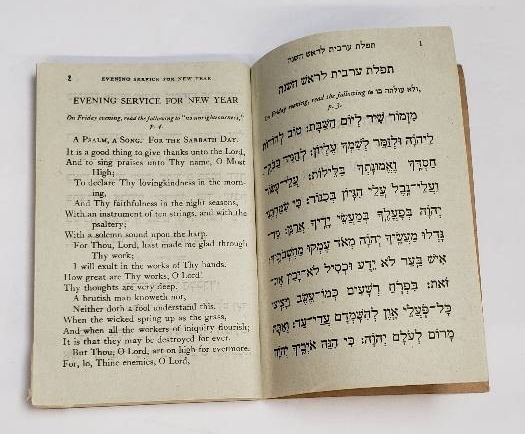 2 EVENING SERVICE FOR NEW YEAR
EVENING SERVICE FOR NEW YEAR
On Friday evening, read the following to "no unrighteousness,"
p. 4.
A PSALM, A SONG. FOR THE SABBATH DAY.
It is a good thing to give thanks unto the Lord,
And to sing praises unto Thy name, O Most
High;
To declare Thy lovingkindness in the morn-
ing,
And Thy faithfulness in the night seasons,
With an instrument of ten strings, and with the
psaltery;
With a solemn sound upon the harp.
For Thou, Lord, hast made me glad through
Thy work;
I will exult in the works of Thy hands.
How great are Thy works, O Lord!
Thy thoughts are very deep.
A brutish man knoweth not,
Neither doth a fool understand this.
When the wicked spring up as the grass,
And when all the workers of iniquity flourish;
It is that they may be destroyed for ever.
But Thou, O Lord, art on high for evermore.
For, lo, Thine enemies, O Lord,
תפלת ערבית לראש השנה 1
תפלת ערבית לראש השנה
On Friday evening, read the following to ולא עולתה בו,
p. 3.
מִזְמוֹר שִׁיר לְיוֹם הַשַּׁבָּת: טוֹב לְהֹדוֹת
לַיהוָֹה וּלְזַמֵּר לְשִׁמְךָ עֶלְיוֹן: לְהַגִּיד בַּבֹּקֶר
חַסְדֶּךָ וֶאֱמוּנָתְךָ בַּלֵּילוֹת: עֲלֵי־עָשׂוֹר
וַעֲלֵי־נָבֶל עֲלֵי הִגָּיוֹן בְּכִנּוֹר: כִּי שִׂמַּחְתַּנִי
יְהוָֹה בְּפָעֳלֶךָ בְּמַעֲשֵׂי יָדֶיךָ אֲרַנֵּן: מַה־
גָּדְלוּ מַעֲשֶׂיךָ יְהוָֹה מְאֹד עָמְקוּ מַחְשְׁבֹתֶיךָ:
אִישׁ בַּעַר לֹא יֵדָע וּכְסִיל לֹא־יָבִין אֶת־
זֹאת: בִּפְרֹחַ רְשָׁעִים כְּמוֹ־עֵשֶׂב וַיָּצִיצוּ
כָּל־פֹּעֲלֵי אָוֶן לְהִשָּׁמְדָם עֲדֵי־עַד: וְאַתָּה
מָרוֹם לְעֹלָם יְהוָֹה: כִּי הִנֵּה אֹיְבֶיךָ יְהוָֹה